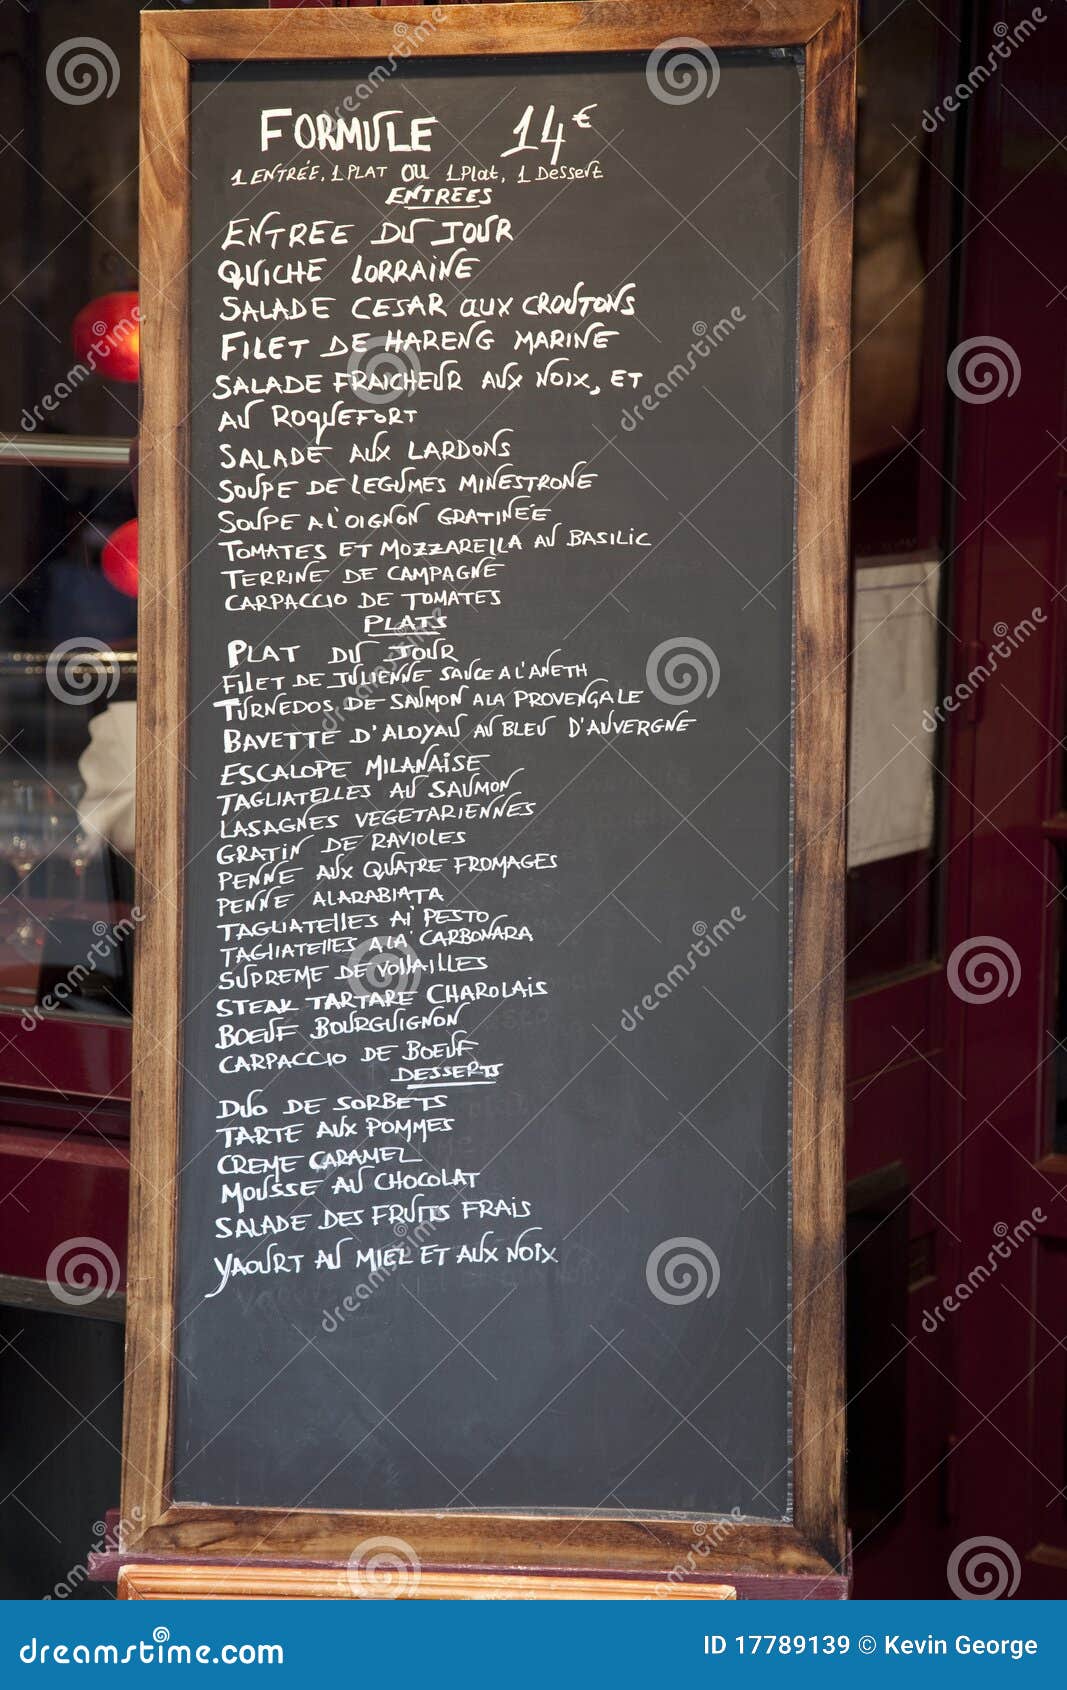 FORMULE 14€
1 ENTRÉE, 1 PLAT OU 1 Plat, 1 Dessert
ENTREES
ENTREE DU JOUR
QUICHE LORRAINE
SALADE CESAR AUX CROUTONS
FILET DE HARENG MARINE
SALADE FRAICHEUR AUX NOIX, ET
AU ROQUEFORT
SALADE AUX LARDONS
SOUPE DE LEGUMES MINESTRONE
SOUPE A L'OIGNON GRATINEE
TOMATES ET MOZZARELLA AU BASILIC
TERRINE DE CAMPAGNE
CARPACCIO DE TOMATES
PLATS
PLAT DU JOUR
FILET DE JULIENNE SAUCE A L'ANETH
TURNEDOS DE SAUMON ALA PROVENGALE
BAVETTE D'ALOYAU AU BLEU D'AUVERGNE
ESCALOPE MILANAISE
TAGLIATELLES AU SAUMON
LASAGNES VEGETARIENNES
GRATIN DE RAVIOLES
PENNE AUX QUATRE FROMAGES
PENNE ALARABIATA
TAGLIATELLES AI PESTO
TAGLIATELLES A LA CARBONARA
SUPREME DE VOLLAILLES
STEAK TARTARE CHAROLAIS
BOEUF BOURGUIGNON
CARPACCIO DE BOEUF
DESSERTS
DUO DE SORBETS
TARTE AUX POMMES
CREME CARAMEL
MOUSSE AU CHOCOLAT
SALADE DES FRUITS FRAIS
YAOURT AU MIEL ET AUX NOIX
dreamstime.com
ID 17789139 © Kevin George